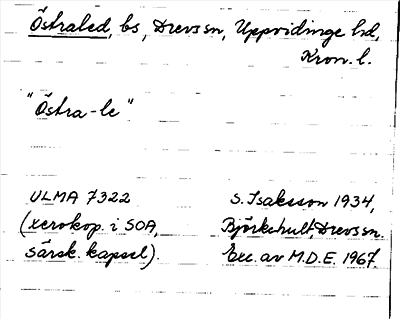 Östraled, bs, Drevs sn, Uppvidinge hd,
Kron. l.
"Östra-le"
ULMA 7322 S. Isaksson 1934,
(xerokop. i SOA, Björkehult, Drevs sn.
särsk. kapsel). Exc. av M.D.E. 1967.